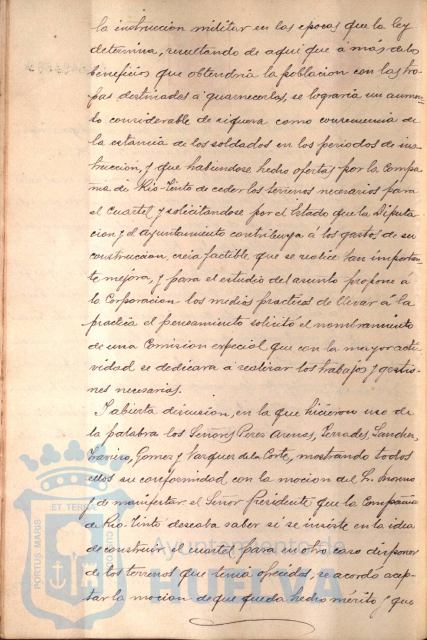 la instruccion militar en las epocas que la ley
determina, resultando de aqui que á más de los
beneficios que obtendria la poblacion con las tro-
pas destinadas á guarnecerlas, se lograria un aumen-
to considerable de riqueza como consecuencia de
la estancia de los soldados en los periodos de ins-
truccion, y que habiendose hecho ofertas por la Compa-
ñia de Rio-Tinto de ceder los terrenos necesarios para
el Cuartel y solicitandose por el Estado que la Diputa-
cion y el Ayuntamiento contribuya á los gastos de su
construccion, creia factible que se realice tan importan-
te mejora, y para el estudio del asunto propone á
la Corporacion los medios practicos de llevar á la
practica el pensamiento solicitó el nombramiento
de una Comision especial que con la mayor acti-
vidad se dedicara á realizar los trabajos y gestio-
nes necesarias.
Y abierta discusion, en la que hicieron uso de
la palabra los Señores Perez Arenas, Terrades, Sanchez,
Gomez y Vazquez de la Corte, mostrando todos
ellos su conformidad con la mocion del Sr. Moreno
y de manifestar el Señor Presidente que la Compañia
de Rio-Tinto deseaba saber si se insiste en la idea
de construir el cuartel para en otro caso disponer
de los terrenos que tenia ofrecidos, se acordo acep-
tar la mocion de que queda hecho mérito y que
PORTUS MARIS ET TERRAE CUSTODIO
Ayuntamiento de
HUELVA